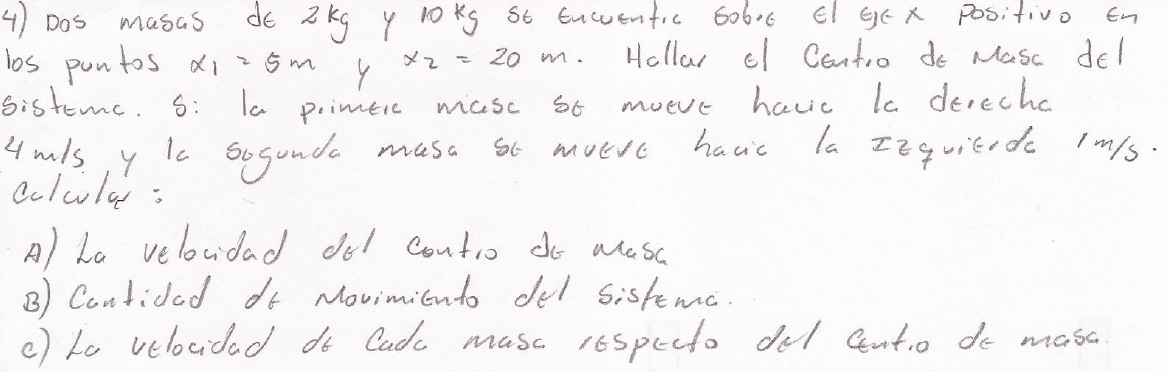 4) Dos masas de 2 kg y 10 kg se encuentra sobre el eje x positivo en
los puntos x1 = 5 m y x2 = 20 m. Hallar el Centro de Masa del
sistema. Si la primera masa se mueve hacia la derecha
4 m/s y la segunda masa se mueve hacia la Izquierda 1 m/s.
Calcular:
A) La velocidad del Centro de Masa
B) Cantidad de Movimiento del sistema.
C) La velocidad de Cada masa respecto del Centro de masa.